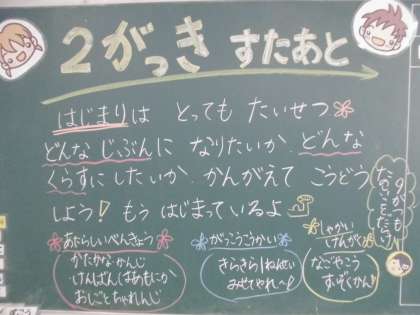 2がっき すたあと
はじまりは とっても たいせつ
どんな じぶんに なりたいか、どんな
くらすにしたいか、かんがえて こうどう
しよう! もう はじまっているよ
9がつも
あたらしいべんきょう
かたかな かんじ
けんばんはあもにか
おしごとちゃれんじ
がっこうこうかい
きらきら1ねんせい
みせてやれ〜!
しゃかい
けんがく
なごもこう
すいぞくかん!